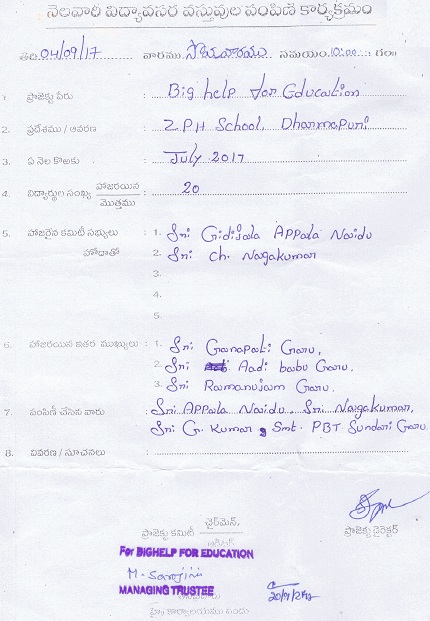 నెలవారీ విద్యావసర వస్తువుల పంపిణి కార్యక్రమం
తేది. 04/09/17 వారము సోమవారము సమయం. 10:00 గం॥
1. ప్రాజెక్టు పేరు : Big help for Education
2. ప్రదేశము / ఆవరణ : Z.P.H School, Dharmapuri
3. ఏ నెల కొఱకు : July 2017
4. విద్యార్థుల సంఖ్య హాజరయిన మొత్తము : 20
5. హాజరైన కమిటీ సభ్యులు హోదాతో : 1. Sri Gidijala Appala Naidu
2. Sri Ch. Nagakumar
3.
4.
5.
6. హాజరయిన ఇతర ముఖ్యులు : 1. Sri Ganapati Garu.
2. Sri Aadi babu Garu.
3. Sri Ramanujam Garu.
7. పంపిణీ చేసిన వారు : Sri Appala Naidu, Sri Nagakumar,
Sri G. Kumar, Smt. PBT Sundari Garu
8. వివరణ / సూచనలు :
ప్రాజెక్టు కమిటీ ఛైర్మెన్, ప్రాజెక్టు డైరెక్టర్
For BIGHELP FOR EDUCATION
M. Sarojini
MANAGING TRUSTEE